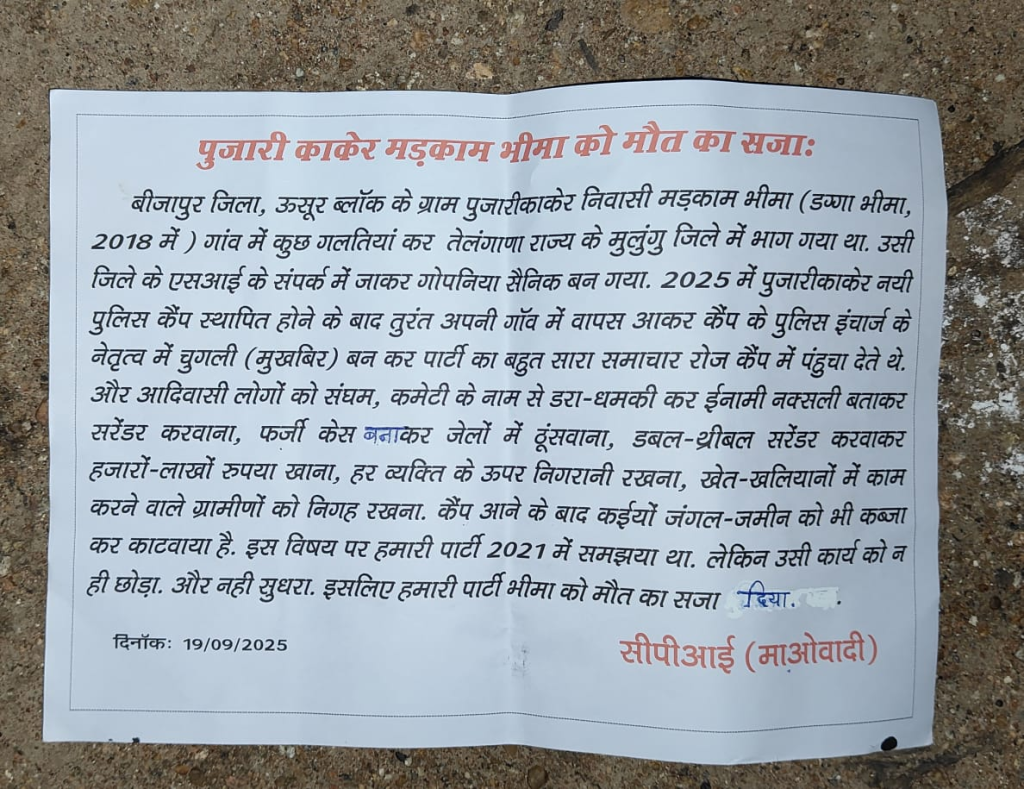 पुजारी काकेर मड़काम भीमा को मौत का सजा:
बीजापुर जिला, ऊसूर ब्लॉक के ग्राम पुजारीकाकेर निवासी मड़काम भीमा (डग्गा भीमा,
2018 में ) गांव में कुछ गलतियां कर तेलंगाणा राज्य के मुलुंगु जिले में भाग गया था. उसी
जिले के एसआई के संपर्क में जाकर गोपनिया सैनिक बन गया. 2025 में पुजारीकाकेर नयी
पुलिस कैंप स्थापित होने के बाद तुरंत अपनी गॉंव में वापस आकर कैंप के पुलिस इंचार्ज के
नेतृत्व में चुगली (मुखबिर) बन कर पार्टी का बहुत सारा समाचार रोज कैंप में पंहुचा देते थे.
और आदिवासी लोगों को संघम, कमेटी के नाम से डरा-धमकी कर ईनामी नक्सली बताकर
सरेंडर करवाना, फर्जी केस बनाकर जेलों में ठूंसवाना, डबल-थ्रीबल सरेंडर करवाकर
हजारों-लाखों रुपया खाना, हर व्यक्ति के ऊपर निगरानी रखना, खेत-खलियानों में काम
करने वाले ग्रामीणों को निगह रखना. कैंप आने के बाद कईयों जंगल-जमीन को भी कब्जा
कर काटवाया है. इस विषय पर हमारी पार्टी 2021 में समझया था. लेकिन उसी कार्य को न
ही छोड़ा. और नही सुधरा. इसलिए हमारी पार्टी भीमा को मौत का सजा दिया. .
दिनॉंक: 19/09/2025
सीपीआई (माओवादी)